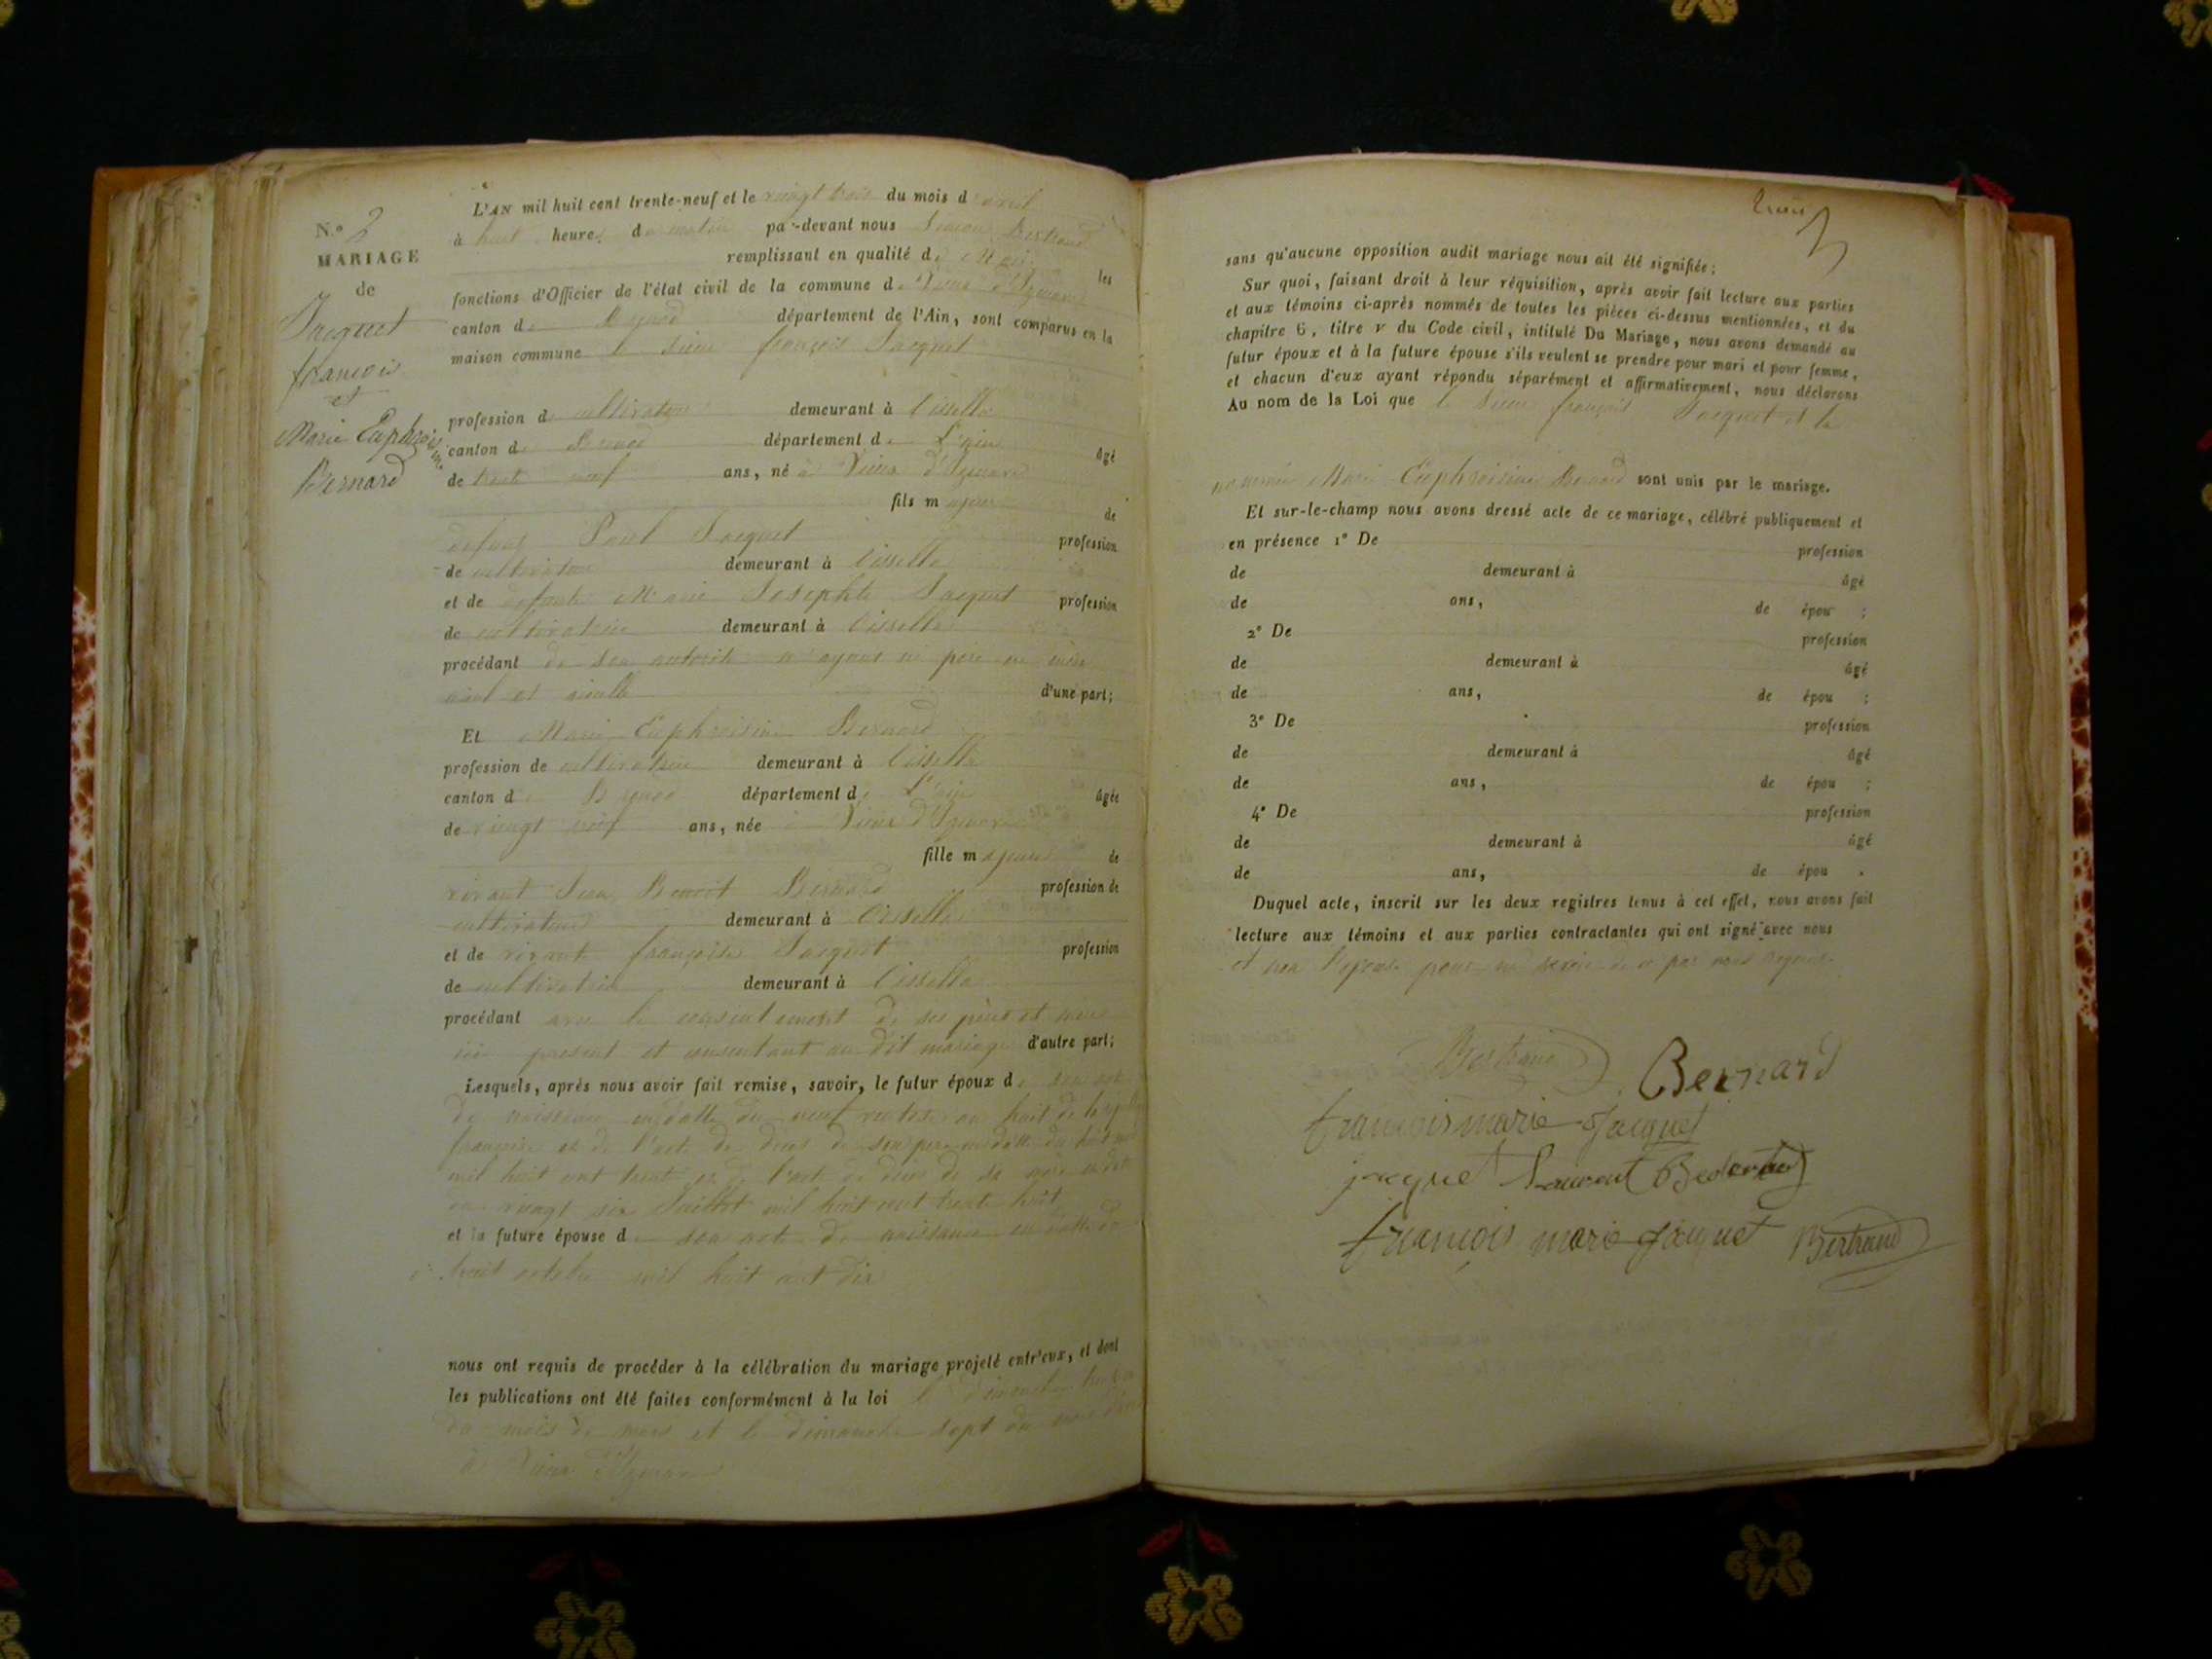 N.o 2
MARIAGE
de
Jacquet
françois
et
Marie Euphroisine
Bernard
L'AN mil huit cent trente-neuf et le vingt trois du mois d'avril
à huit heures du matin par-devant nous Simon Bertrand
remplissant en qualité de Maire les
fonctions d'Officier de l'état civil de la commune de Vieux d'Izenave
canton de département de l'Ain, sont comparus en la
maison commune le sieur françois Jacquet
profession de cultivateur demeurant à
canton de département de L'ain âgé
de trente neuf ans, né à Vieux d'Izenave
fils majeur de
défunt Paul Jacquet profession
de cultivateur demeurant à
et de défunte Marie Josephte Jacquet profession
de cultivatrice demeurant à
procédant de son autorité n'ayant ni père ni mère
aieul et aieulle d'une part;
Et Marie Euphroisine Bernard
profession de cultivatrice demeurant à
canton de département de L'ain âgée
de vingt neuf ans, née à Vieux d'Izenave
fille majeure de
vivant Jean Benoit Bernard profession de
cultivateur demeurant à
et de vivante françoise Jacquet profession
de cultivatrice demeurant à
procédant avec le consentement de ses père et mère
ici présent et consentant au dit mariage d'autre part;
Lesquels, après nous avoir fait remise, savoir, le futur époux de son acte
de naissance en datte du neuf ventose an huit de la
française et de l'acte de décès de son père en datte du huit
mil huit cent trente et de l'acte de décès de sa mère en date
du vingt six Juillet mil huit cent trente huit
et la future épouse de son acte de naissance en datte du
huit octobre mil huit cent dix
nous ont requis de procéder à la célébration du mariage projeté entr'eux, et dont
les publications ont été faites conformément à la loi le dimanche
du mois de mars et le dimanche sept du mois
à Vieux d'Izenave
trois
3
sans qu'aucune opposition audit mariage nous ait été signifiée;
Sur quoi, faisant droit à leur réquisition, après avoir fait lecture aux parties
et aux témoins ci-après nommés de toutes les pièces ci-dessus mentionnées, et du
chapitre 6, titre v du Code civil, intitulé Du Mariage, nous avons demandé au
futur époux et à la future épouse s'ils veulent se prendre pour mari et pour femme,
et chacun d'eux ayant répondu séparément et affirmativement, nous déclarons
Au nom de la Loi que le Sieur françois Jacquet et la
nommée Marie Euphroisine Bernard sont unis par le mariage.
Et sur-le-champ nous avons dressé acte de ce mariage, célébré publiquement et
en présence 1o De profession
de demeurant à âgé
de ans, de épou ;
2o De profession
de demeurant à âgé
de ans, de épou ;
3o De profession
de demeurant à âgé
de ans, de épou ;
4o De profession
de demeurant à âgé
de ans, de épou .
Duquel acte, inscrit sur les deux registres tenus à cet effet, nous avons fait
lecture aux témoins et aux parties contractantes qui ont signé avec nous
et non l'épouse pour ne savoir de ce par nous requise
Bertrand Bernard
françois marie Jacquet
jaque Laurent
françois marie Jacquet Bertrand